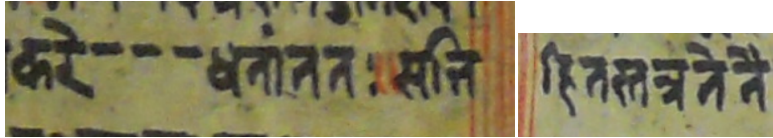 करे---धतांततः सन्नि
हितस्तत्रतेनै